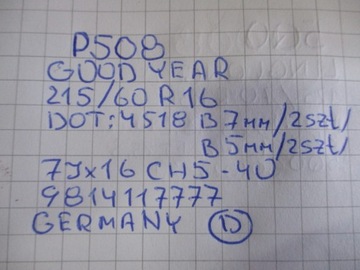 P508
GOOD YEAR
215/60 R16
DOT: 4518 B 7мм/2szt/
B 5мм/2szt/
7Jx16 CH5-40
9814117777
GERMANY D